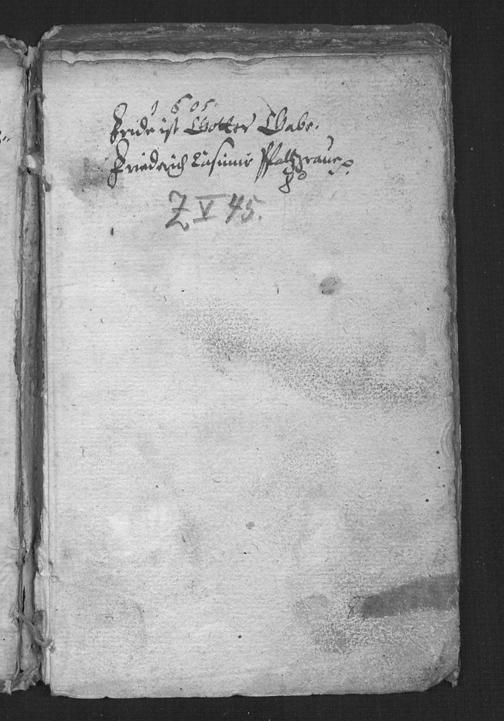 1605.
Fride ist Gottes Gabe.
Friederich Casimir Pfaltzgraue
Z V 45.